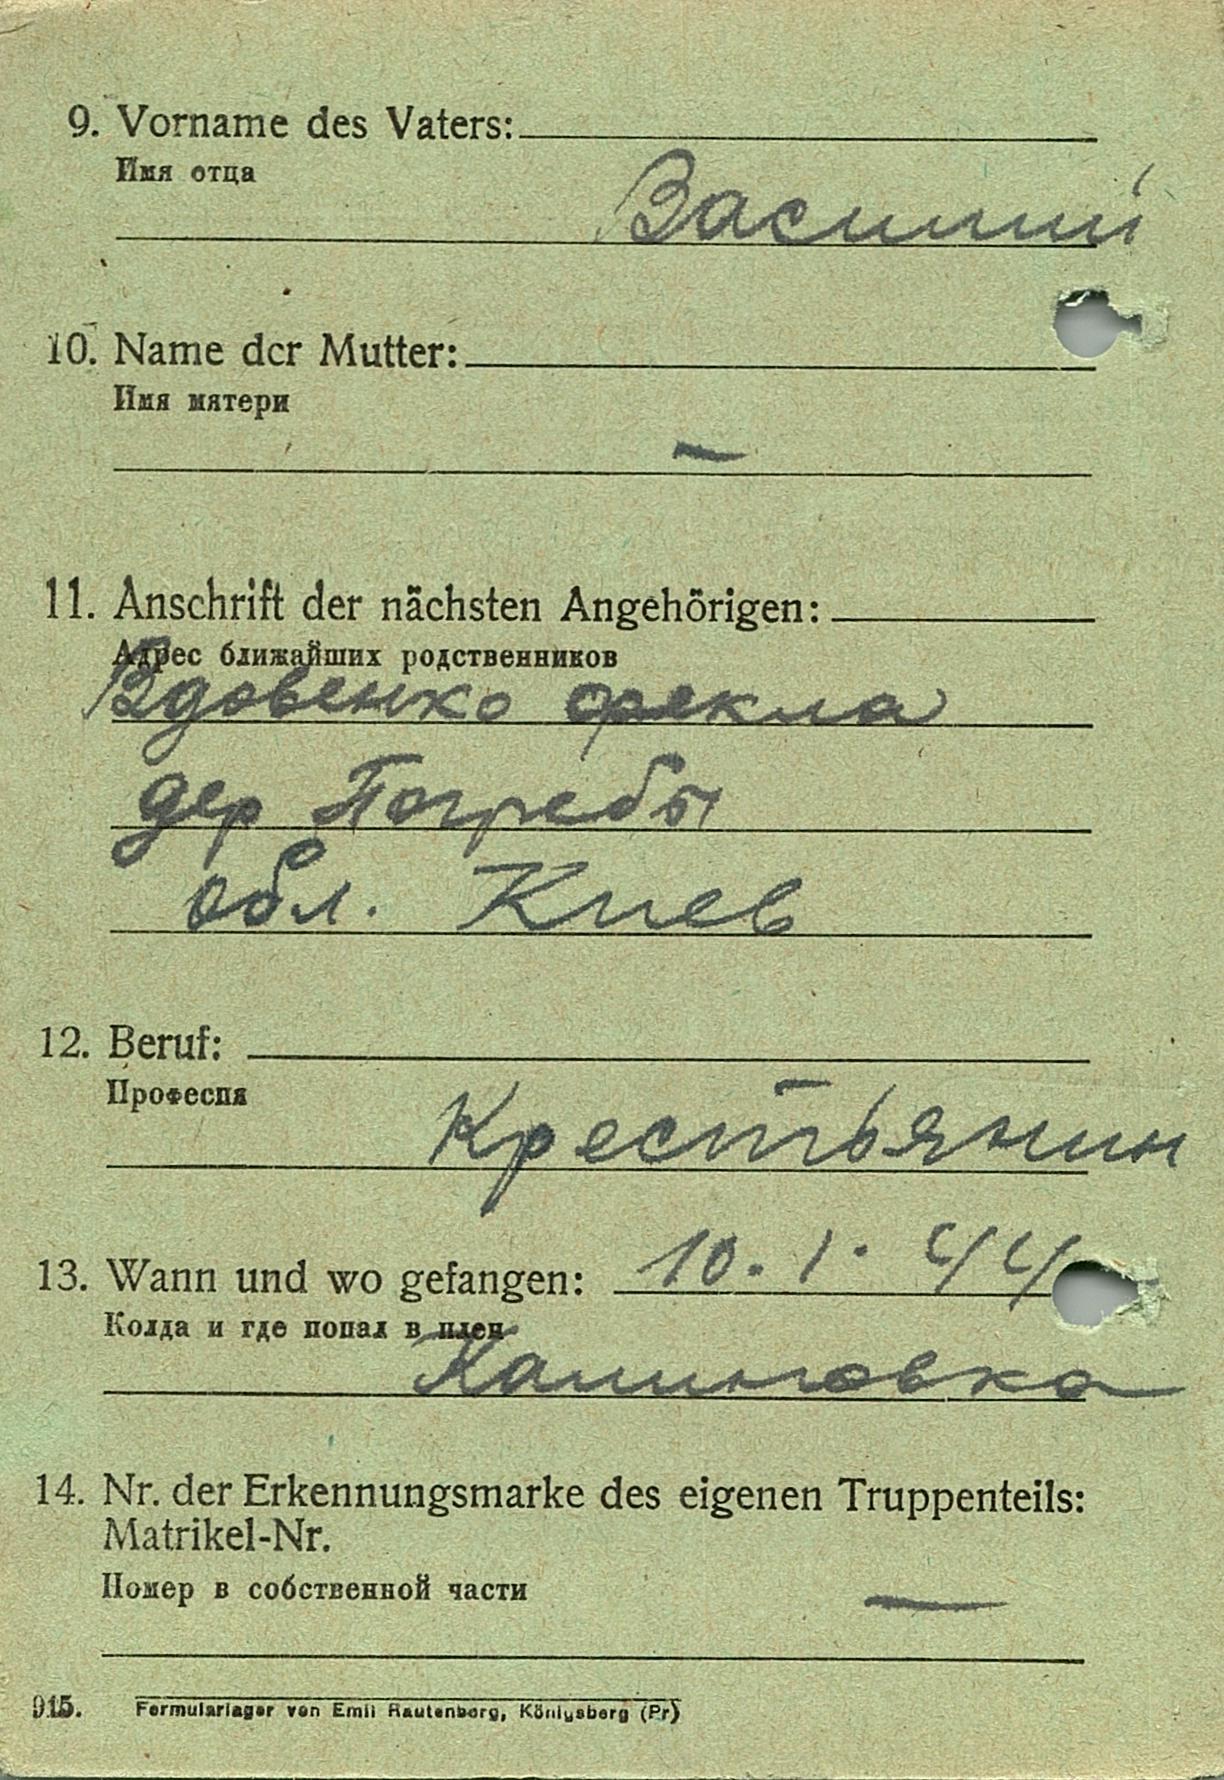 9. Vorname des Vaters:
Имя отца
Василий
10. Name der Mutter:
Имя мятери
—
11. Anschrift der nächsten Angehörigen:
Адрес ближайших родственников
Вдовенко фекла
дер Погребы
обл. Киев
12. Beruf:
Професия
Крестьянин
13. Wann und wo gefangen: 10. 1. 44
Колда и где попал в плен
Калиновка
14. Nr. der Erkennungsmarke des eigenen Truppenteils:
Matrikel-Nr.
Номер в собственной части
—
915. Formularlager von Emil Rautenberg, Königsberg (Pr)